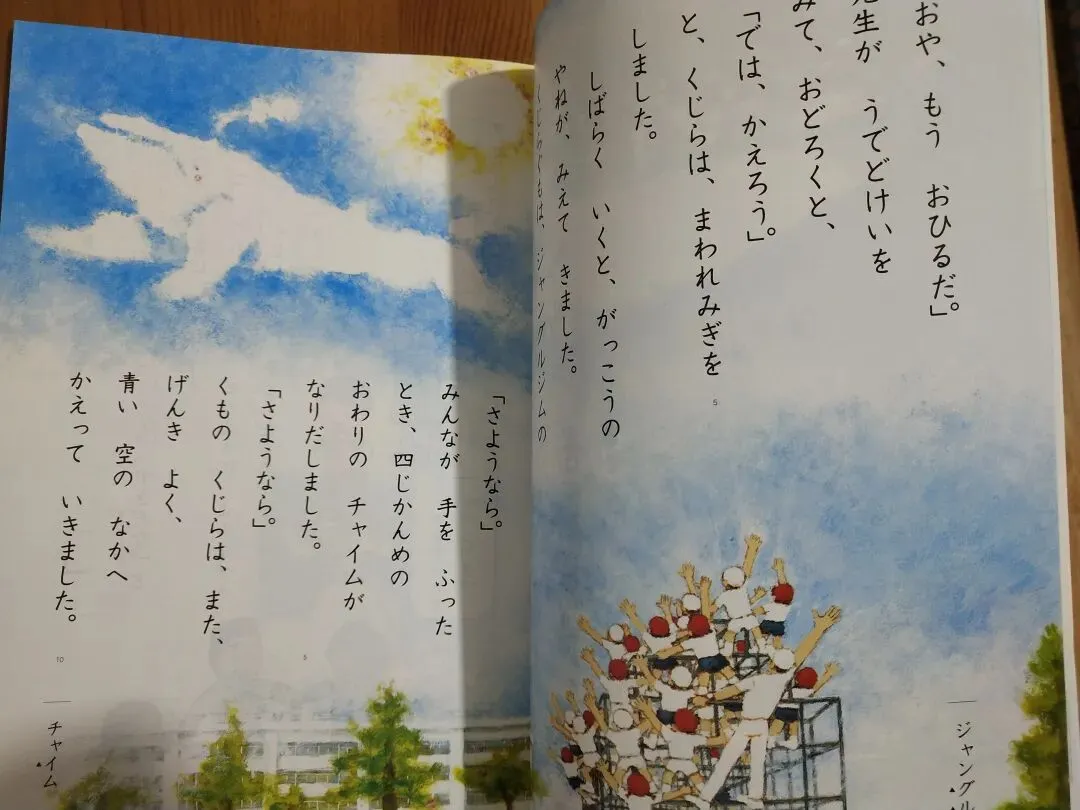 おや、もう　おひるだ。」
先生が　うでどけいを
みて、おどろくと、
「では、かえろう。」
と、くじらは、まわれみぎを
しました。
しばらく　いくと、がっこうの
やねが、みえて　きました。
くじらぐもは、ジャングルジムの
5
ジャングル
「さようなら。」
みんなが　手を　ふった
とき、四じかんめの
おわりの　チャイムが
なりだしました。
「さようなら。」
くもの　くじらは、また、
げんき　よく、
青い　空の　なかへ
かえって　いきました。
5
10
チャイム